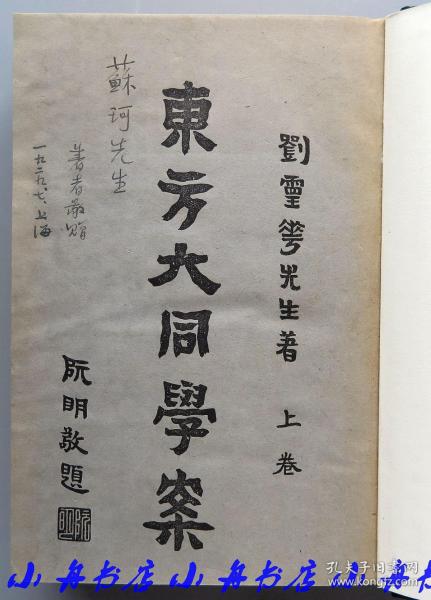 劉靈華先生著 上卷
東方大同學案
阮明敬題
蘇珂先生
著者敬贈
一九二九、七、上海
小舟书店 小舟书店 小舟书店
孔夫子旧书网
www.kongfz.com